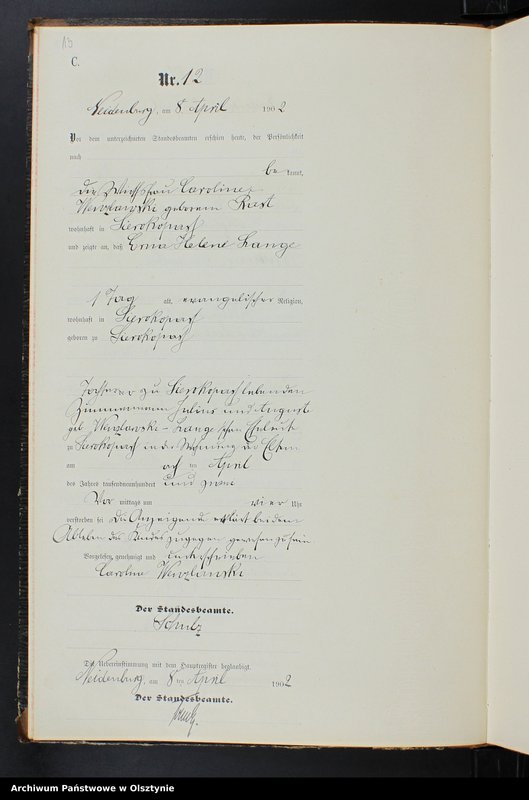 13
C.
Nr. 12
Neidenburg, am 8 April 1902
Vor dem unterzeichneten Standesbeamten erschien heute, der Persönlichkeit
nach
bekannt,
die Caroline
geborene Rast
wohnhaft in Sierokopaß
und zeigte an, daß Erna Helene Lange
1 Tag alt, evangelischer Religion,
wohnhaft in Sierokopaß
geboren zu Sierokopaß
Tochter der zu Sierokopaß lebenden
Zimmermann Julius und Auguste
geb. Lange schen Eheleute
zu Sierokopaß in der Wohnung der Eltern
am acht ten April
des Jahres tausendneunhundert und zwei
Vor mittags um vier Uhr
verstorben sei Die Anzeigende erklärt bei dem
Ableben des Kindes zugegen gewesen zu sein.
Vorgelesen, genehmigt und unterschrieben
Caroline
Der Standesbeamte.
Schulz
Die Uebereinstimmung mit dem Hauptregister beglaubigt.
Neidenburg, am 8 ten April 1902
Der Standesbeamte.
Schulz.
Archiwum Państwowe w Olsztynie